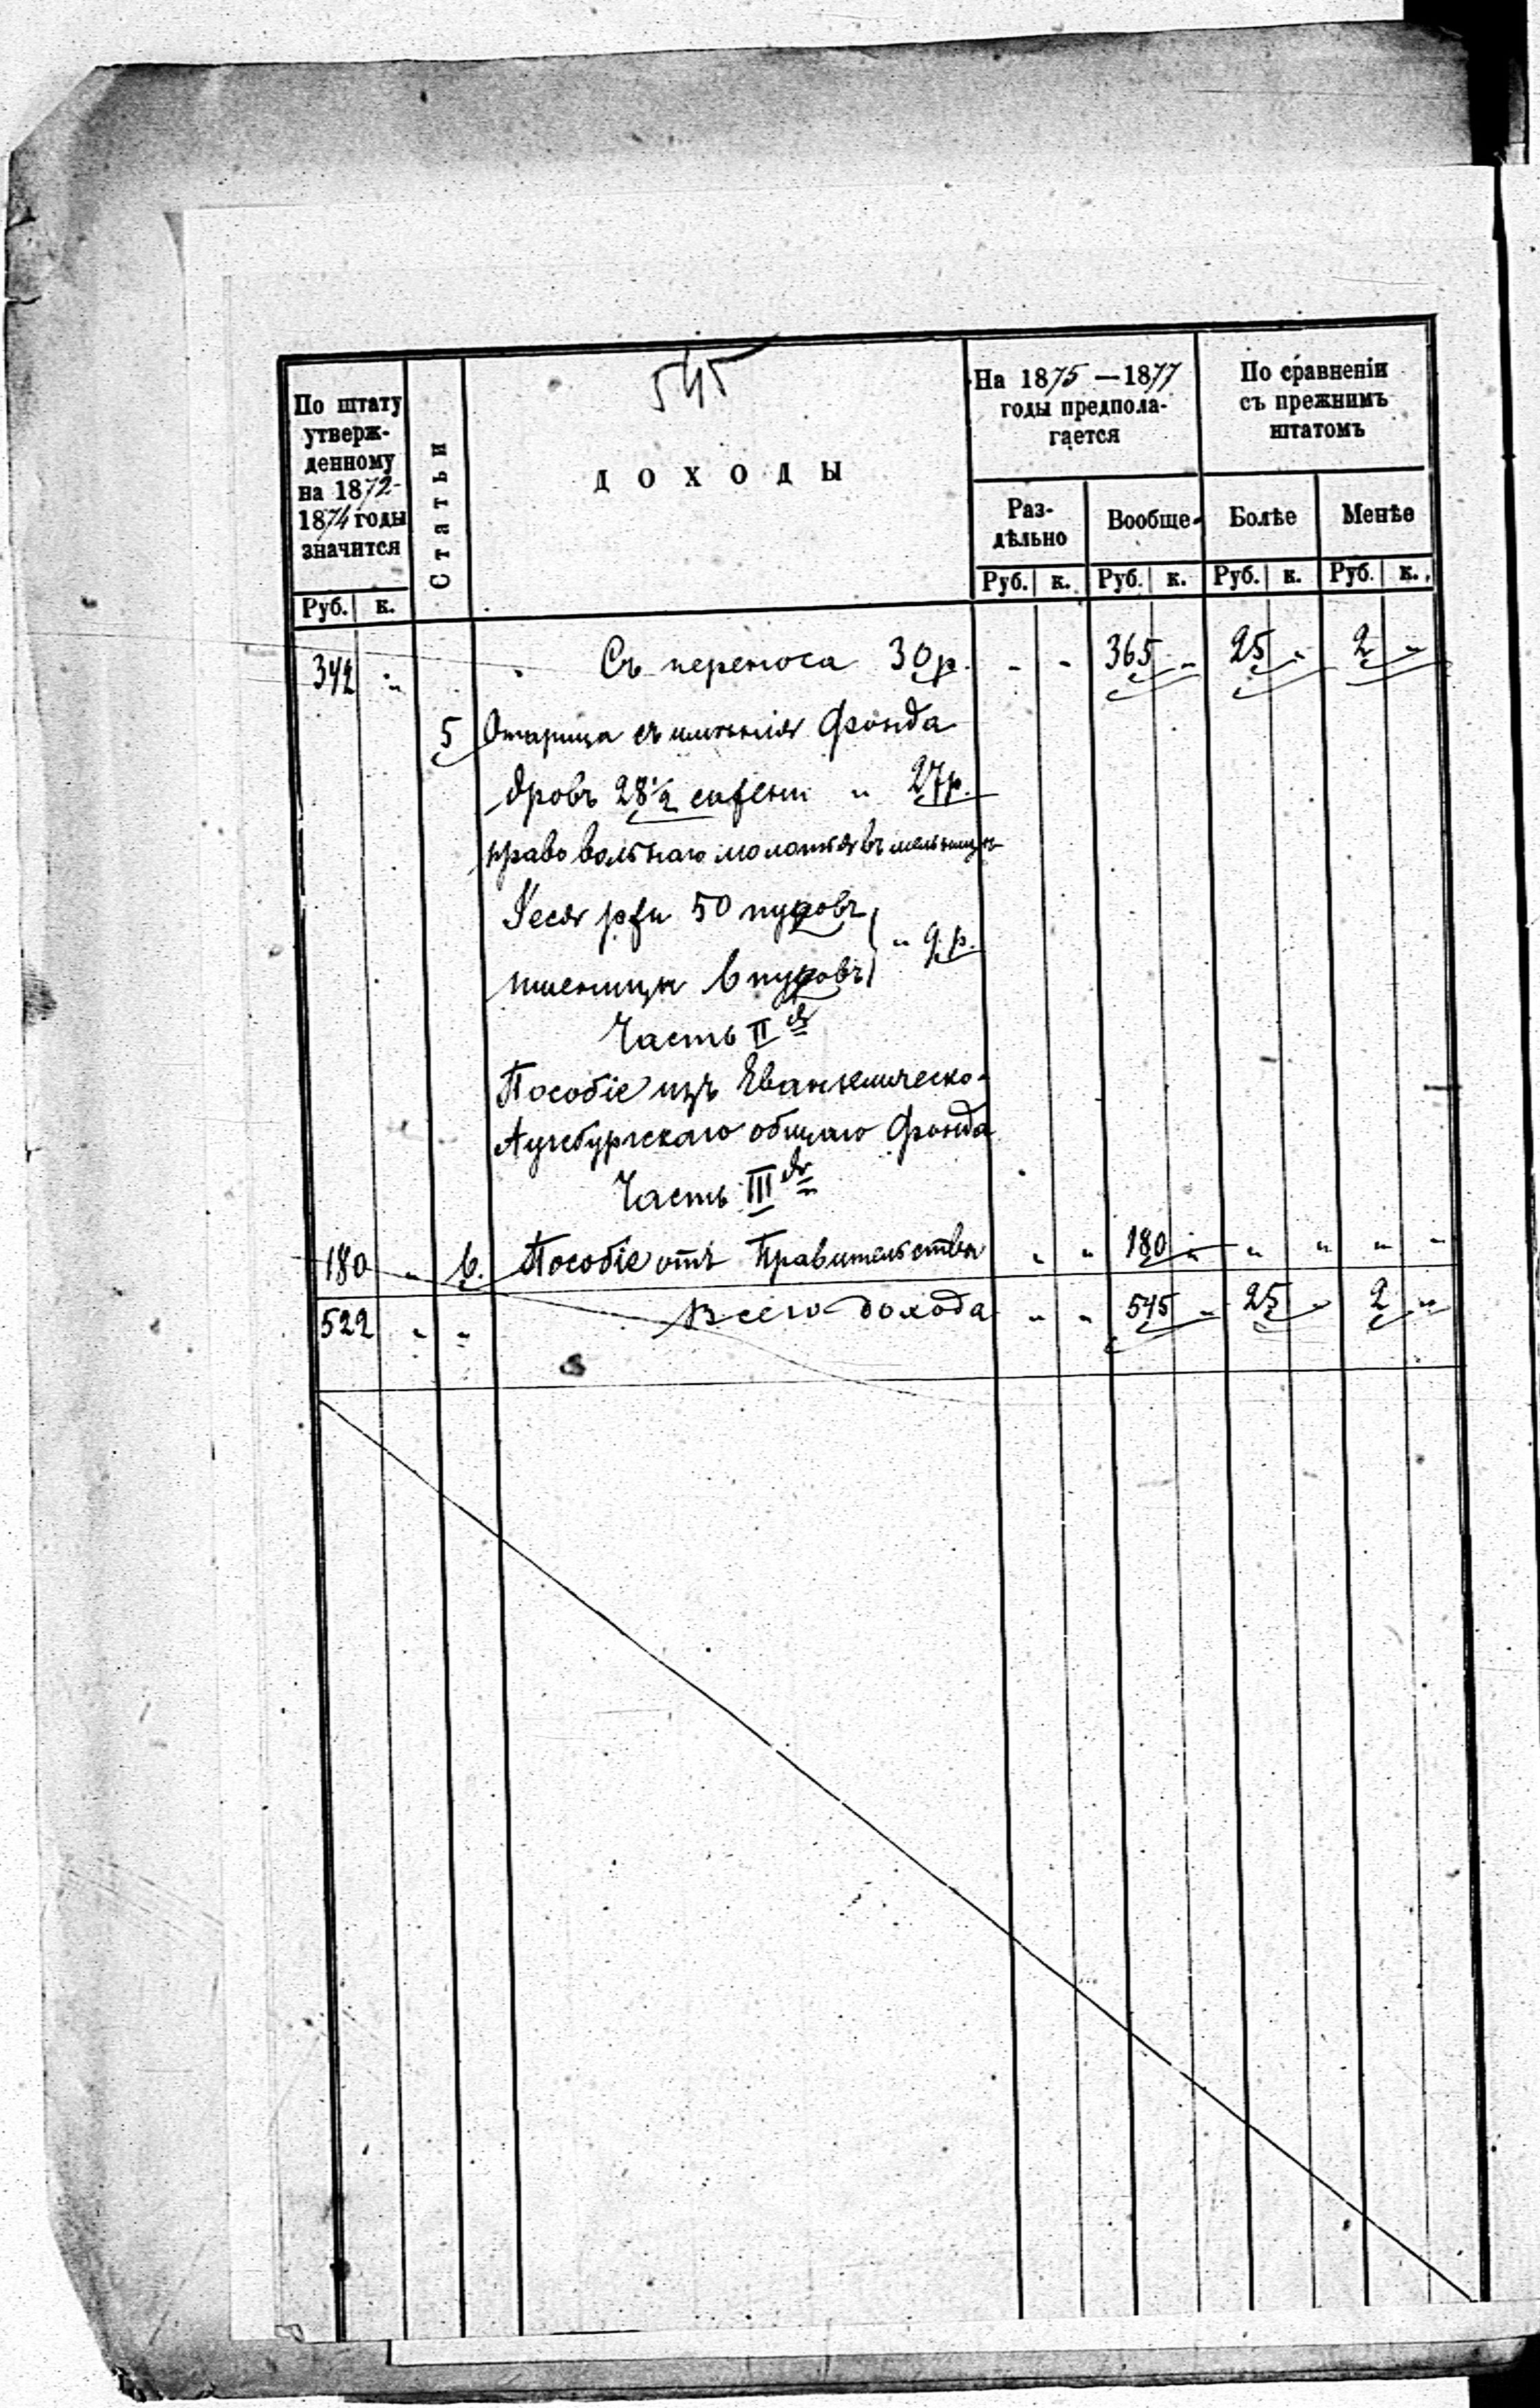 545
По штату
утверж-
денному
на 1872-
1874 годы
значится
Руб. к.
Статьи
ДОХОДЫ
На 1875 — 1877
годы предпола-
гается
Раз-
дѣльно
Вообще
Руб. к. Руб. к.
По сравненіи
съ прежнимъ
штатомъ
Болѣе
Менѣе
Руб. к. Руб. к.
342 " Съ переноса 30 р. " " 365 " 25 " 2 "
5 съ имѣнія Фонда
дровъ 28½ сажени " 27 р.
право вольнаго въ мельницѣ
ржи 50 пудовъ
" 9 р.
пшеницы 6 пудовъ
Часть II я
Пособіе изъ Евангелическо-
Аугсбургскаго общаго Фонда
Часть III я
180 " 6. Пособіе отъ Правительства " " 180 " " " " "
522 " " Всего дохода " " 545 " 25 " 2 "